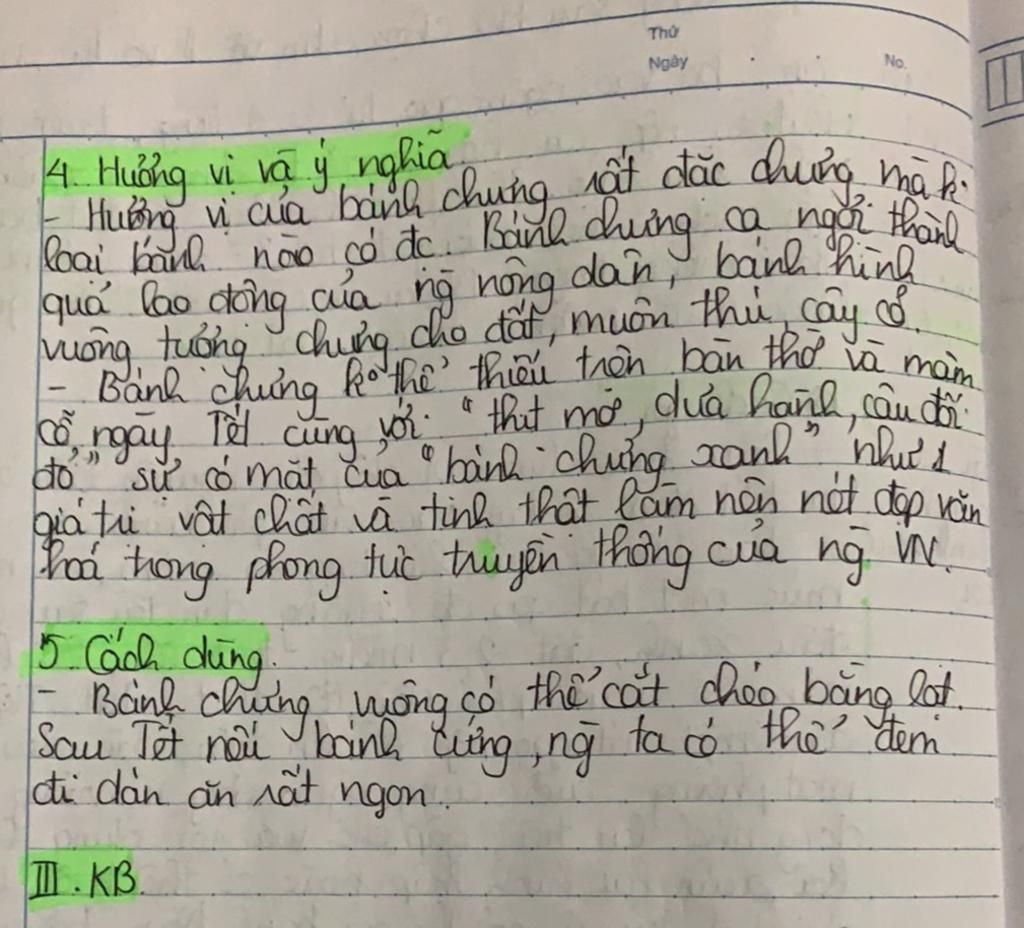 Thứ
Ngày
No.
4. Hương vị và ý nghĩa
- Hương vị của bánh chưng rất đặc chưng mà k°
loại bánh nào có đc. Bánh chưng ca ngợi thành
quả lao động của ng nông dân, bánh hình
vuông tượng chưng cho đất, muôn thú, cây cỏ.
- Bánh chưng k° thể thiếu trên bàn thờ và mâm
cỗ ngày Tết cùng với "thịt mỡ, dưa hành, câu đối
đỏ" sự có mặt của "bánh chưng xanh" như 1
giá trị vật chất và tinh thật làm nên nét đẹp văn
hoá trong phong tục truyền thống của ng VN.
5. Cách dùng.
- Bánh chưng vuông có thể cắt chéo bằng lạt.
Sau Tết nếu bánh cứng, ng ta có thể đem
đi dán ăn rất ngon.
III. KB.